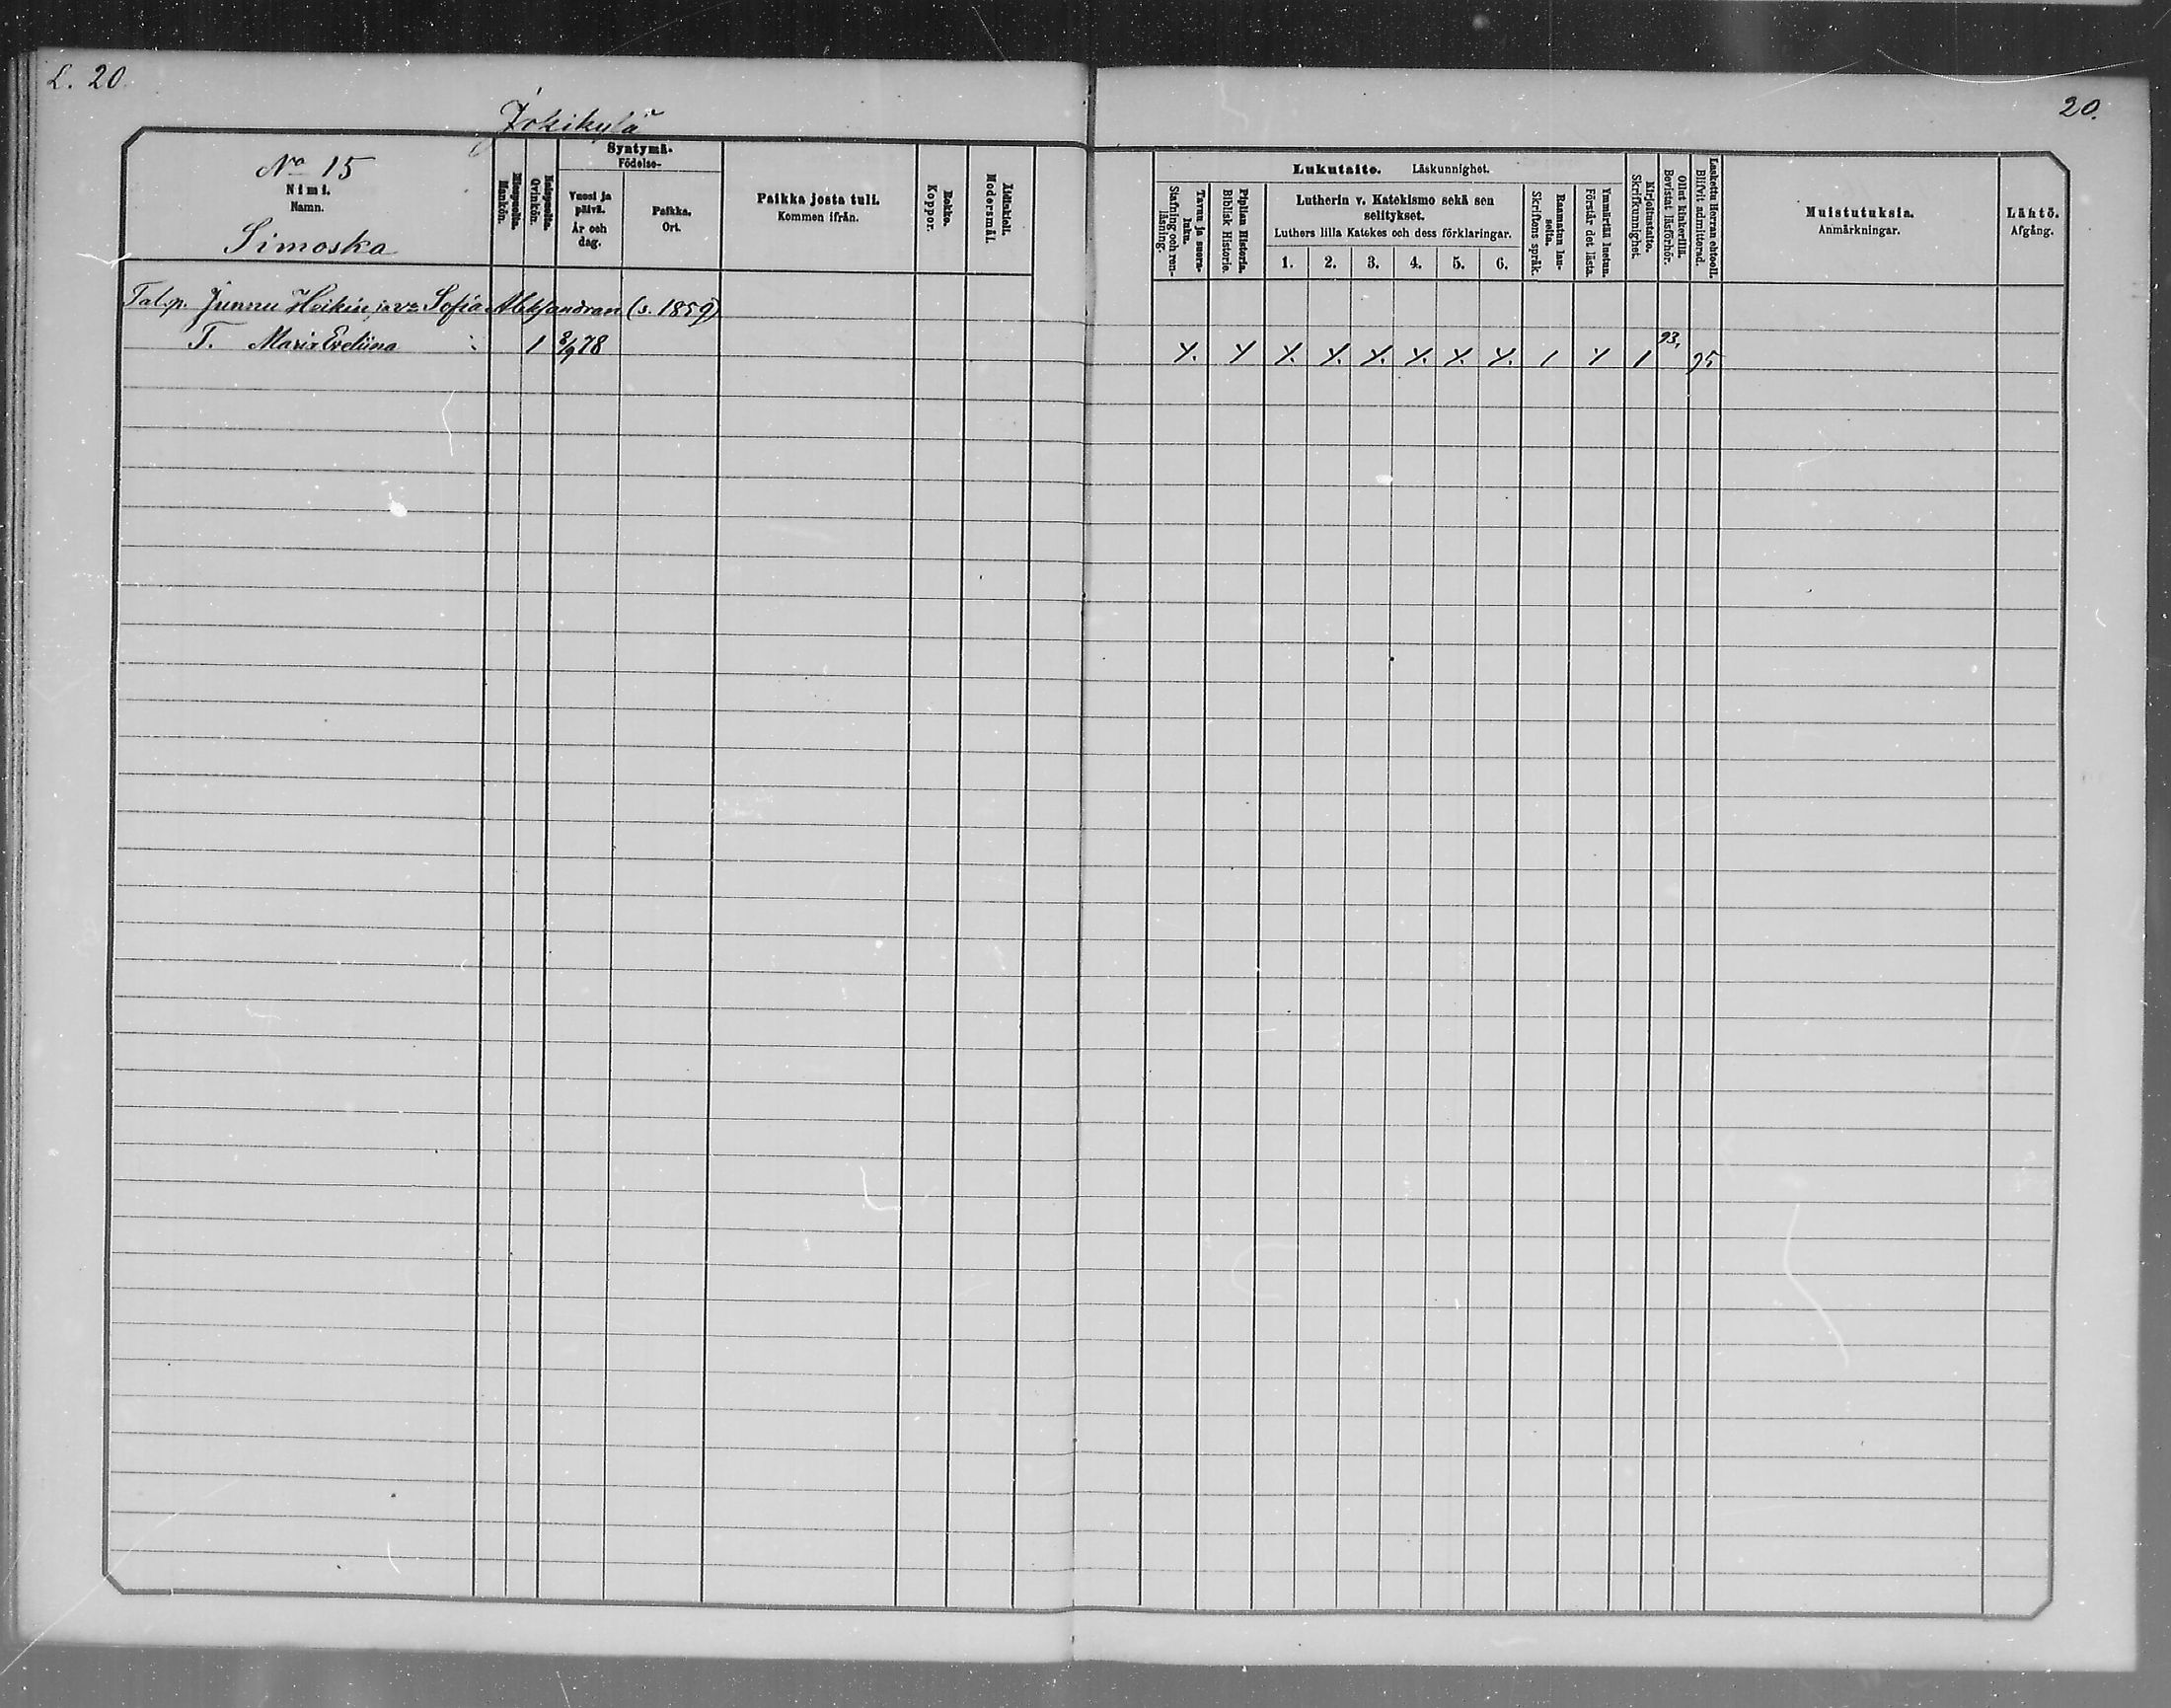 L. 20
20.
Jokikylä
No 15
Nimi.
Namn.
Simoska
Miespuolia.
Mankön.
Naispuolia.
Qvinkön.
Syntymä.
Födelse-
Vuosi ja
päivä.
År och
dag.
Paikka.
Ort.
Paikka josta tuli.
Kommen ifrån.
Rokko.
Koppor.
Äidinkieli.
Modersmål.
Lukutaito. Läskunnighet.
Tavuu ja suora-
luku.
Stafning och ren-
läsning.
Piplian Historia.
Biblisk Historie.
Lutherin v. Katekismo sekä sen
selitykset.
Luthers lilla Katekes och dess förklaringar.
1. 2. 3. 4. 5. 6.
Raamatun lau-
seita.
Skriftens språk.
Ymmärtää luetun.
Förstår det lästa.
Kirjoitustaito.
Skrifkunnighet.
Ollut kinkerillä.
Bevistat läsförhör.
Laskettu Herran ehtool.
Blifvit admitterad.
Muistutuksia.
Anmärkningar.
Lähtö.
Afgång.
Tal.p. Junnu Heikin ja v: Sofia Aleksandran (s. 1859)
T. Maria Eveliina 1 8/9 78 93, 95